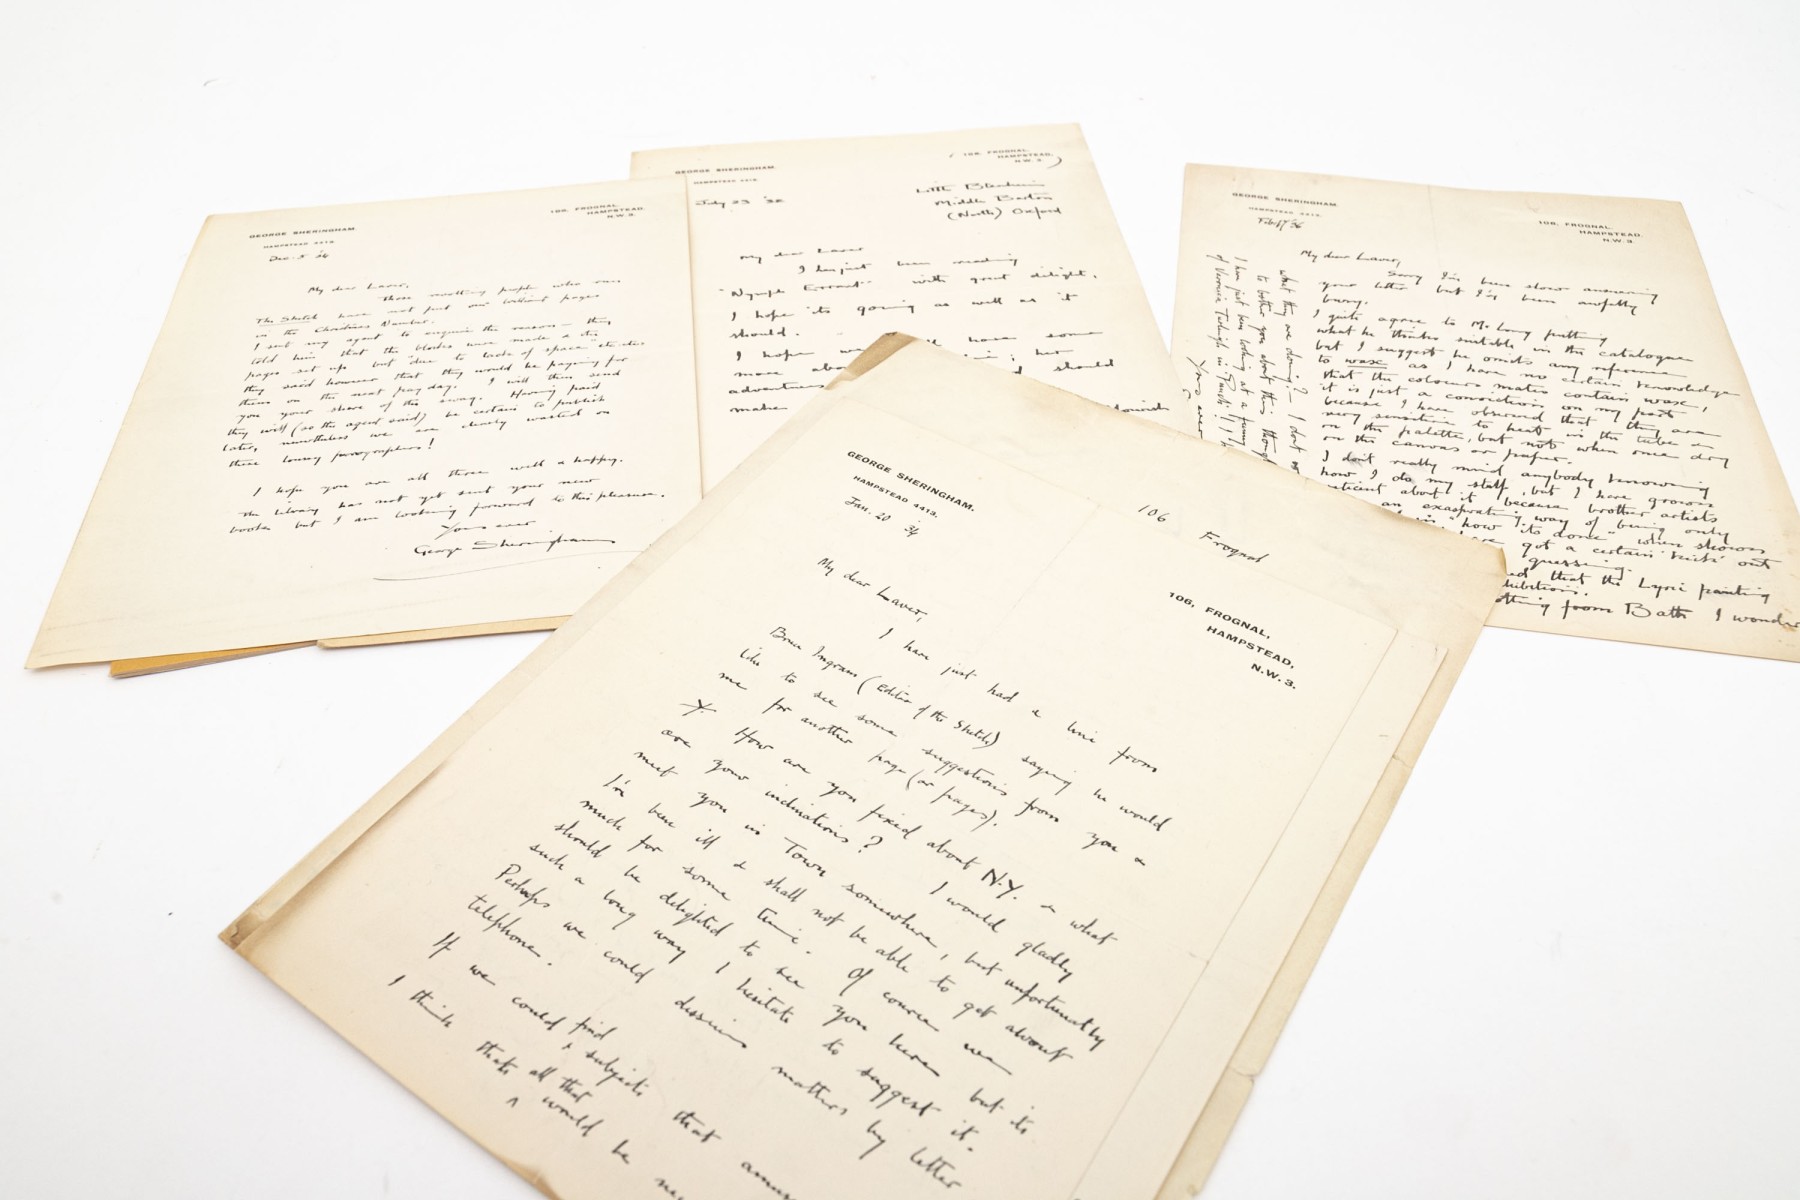 GEORGE SHERINGHAM.
HAMPSTEAD 4413.
106, FROGNAL,
HAMPSTEAD,
N.W.3.
Dec. 5 '34
My dear Laver,
Those revolting people who run
The Sketch have not put our brilliant pages
in the Christmas Number.
I sent my agent to enquire the reason — they
told him that the blocks were made & the
pages set up but "due to lack of space" etc. etc.
they said however that they would be paying for
them on the next pay day. I will then send
you your share of the swag. Having paid
they will (so the agent said) be certain to publish
later, nonetheless we are clearly wasted on
these lousy paragraphers!
I hope you are all three well & happy.
The library has not yet sent your new
books but I am looking forward to this pleasure.
Yours ever
George Sheringham
GEORGE SHERINGHAM.
HAMPSTEAD 4413.
(106, FROGNAL,
HAMPSTEAD,
N.W.3.)
July 23
Little Blenheim
Middle Barton
(North) Oxford
My dear Laver
I have just been reading
"Nymph Errant" with great delight.
I hope its going as well as it
should.
I hope we have some
more abo ; her
adventures should
make
GEORGE SHERINGHAM.
HAMPSTEAD 4413.
106, FROGNAL,
HAMPSTEAD,
N.W.3.
My dear Laver,
Sorry I've been slow answering
your letter but I've been awfully
busy.
I quite agree to Mr Long putting
what he thinks suitable in the catalogue
but I suggest he omits any reference
to wax as I have no certain knowledge
that the colours mates contain wax,
it is just a conviction on my part
because I have observed that they are
very sensitive to heat in the tube &
on the palette, but not when once dry
on the canvas or paper.
I don't really mind anybody knowing
how I do my stuff, but I have grown
reticent about it because brother artists
an exasperating way of being only
in "how its done" when shows
have got a certain 'kick' out
guessing.
that the Lyric painting
nothing from Bath I wonder
what they are doing? — I don't
to bother you about this though
I have just been looking at a funny
of Veronica Turleigh in Punch!
Yours ever
GEORGE SHERINGHAM.
HAMPSTEAD 4413.
Jan. 20 '34
106 Frognal
106, FROGNAL,
HAMPSTEAD,
N.W.3.
My dear Laver,
I have just had a line from
Bruce Ingram (Editor of the Sketch) saying he would
like to see some suggestions from you &
me for another page (or pages).
How are you fixed about N.Y. & what
are your inclinations? I would gladly
meet you in Town somewhere, but unfortunately
I've been ill & shall not be able to get about
much for some time. Of course we
should be delighted to see you here but its
such a long way I hesitate to suggest it.
Perhaps we could discuss matters by letter
telephone.
If we could find subjects that
I think thats all that would be